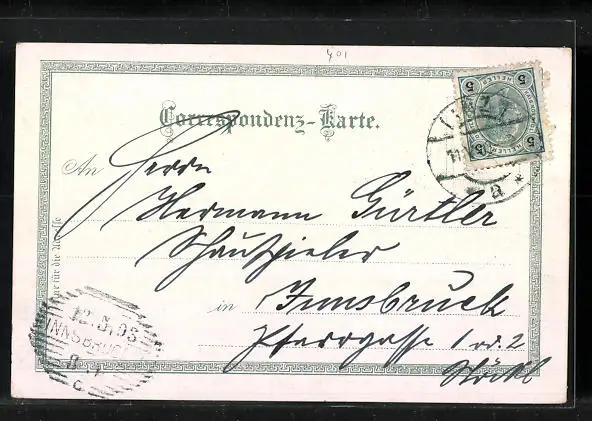 401
Correspondenz-Karte.
An Herrn
Hermann Gürtler
Schauspieler
in Innsbruck
Pfarrgasse 1 od. 2
Stock
Nur für die Adresse
5 HELLER 5
a
12.5.03
INNSBRUCK